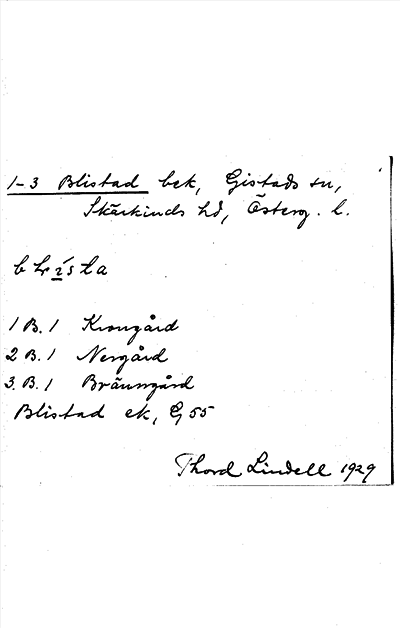 1-3 Blistad bek, Gistads sn,
Skärkinds hd, Österg. l.
1 B. 1 Krongård
2 B. 1 Nergård
3 B. 1 Bränngård
Blistad ek, G 55
Thord Lindell 1929